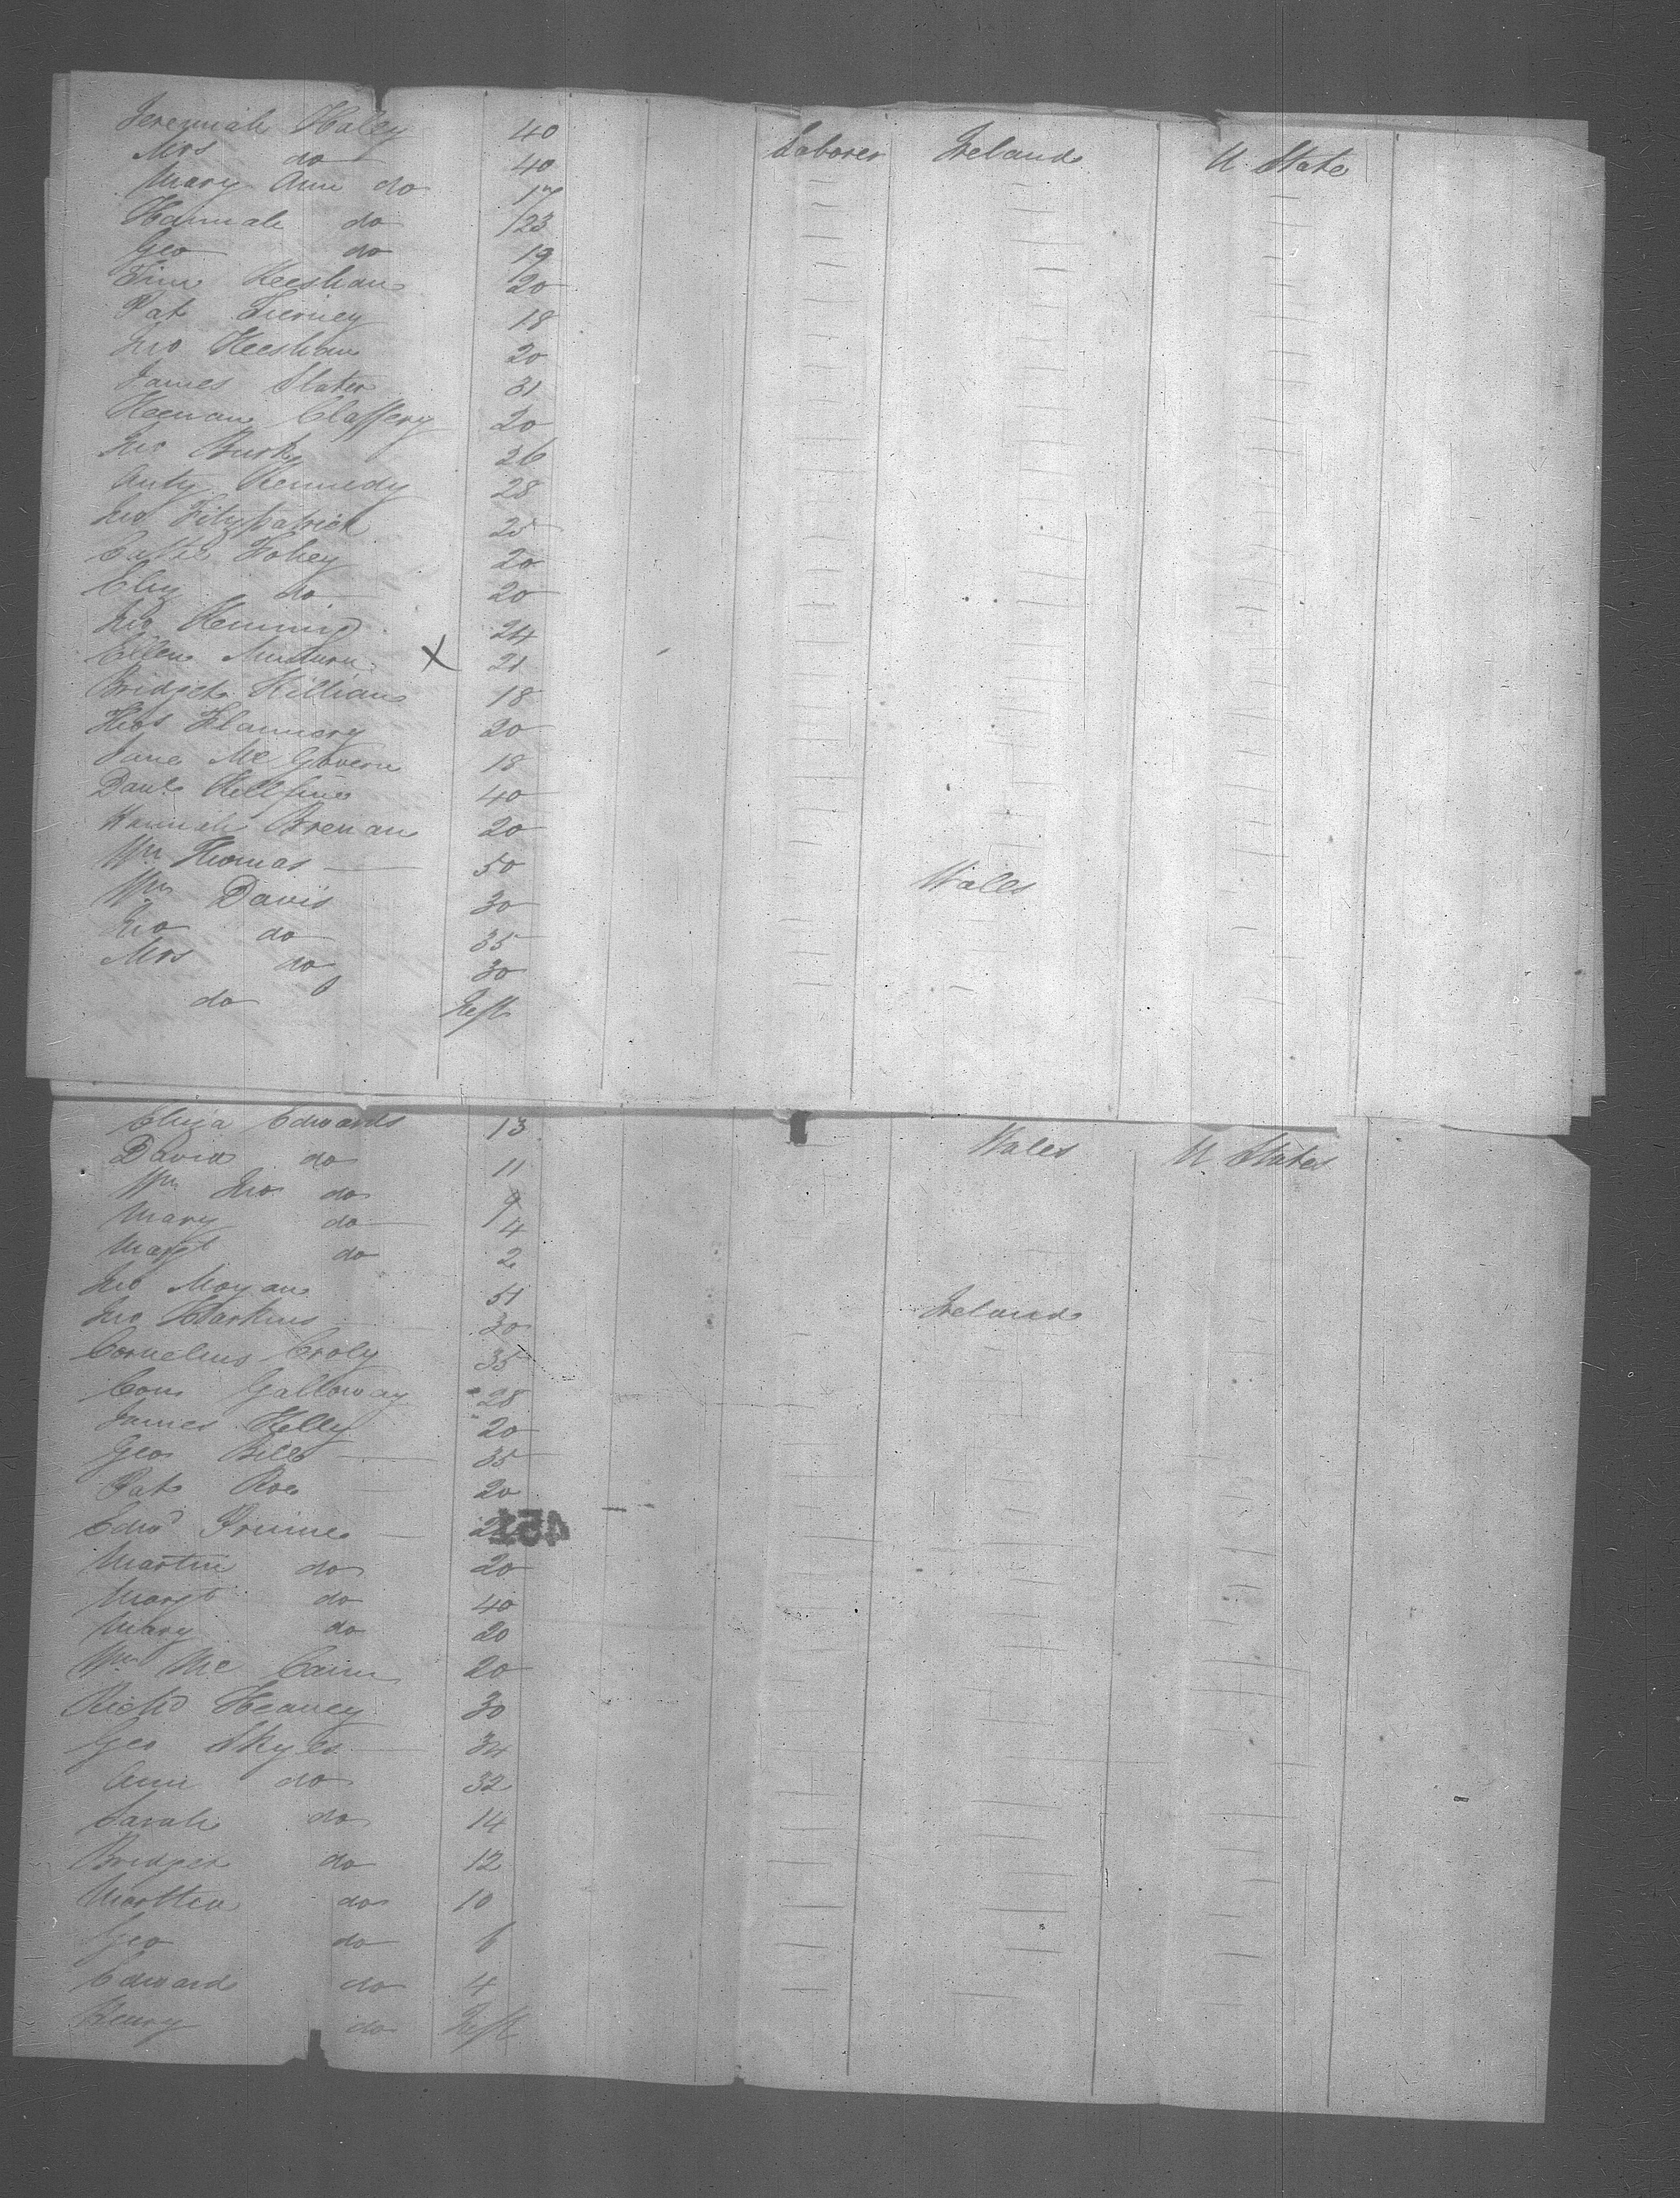 Jeremiah Haley 40 Laborer Ireland U State
Mrs do 40
Mary Ann do 17
Hannah do 23
Geo do 19
Tim Keeshan 20
Pat Tierney 18
Jno Keeshan 20
James Slater 31
Keenan Claffery 20
Jno Burke 26
Anty Kennedy 28
Jno Fitzpatrick 25
Cathe Fohey 20
Eliz do 20
Jno 24
Ellen X 21
Bridget Killian 18
Thos Flannery 20
Jane Mc Govern 18
Danl 40
Hannah Brenan 20
Wm Thomas 50 Wales
Wm Davis 30
Jno do 35
Mrs do 30
do Inft
Eliza Edwards 13 Wales U States
David do 11
Wm Jno do 9
Mary do 4
Margt do 2
Jno Moyan 51
Jno Harkins 30 Ireland
Cornelius Croly 35
Con Galloway 28
James Kelly 20
Geo Bill 35
Pat Roe 20
Edwd 451
Martin do 20
Margt do 40
Mary do 20
Wm Mc Cann 20
Richd Heaney 30
Geo Skyes 34
Ann do 32
Sarah do 14
Bridget do 12
Martha do 10
Geo do 6
Edward do 4
Henry do Inft